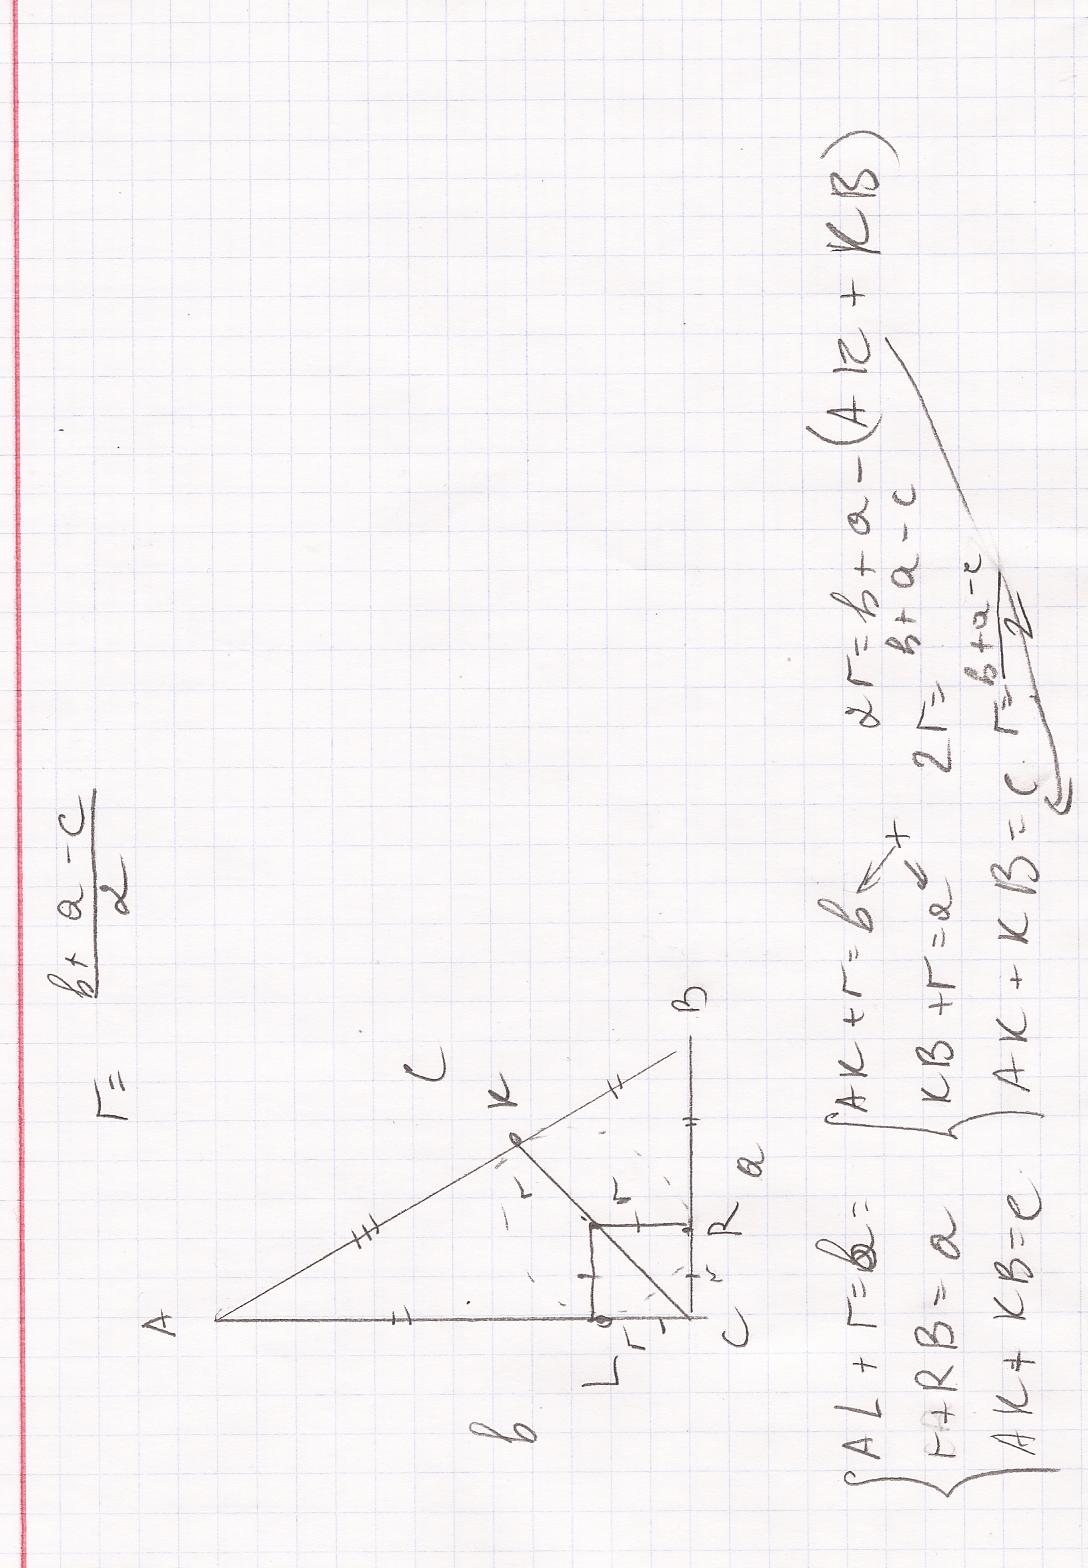 r = b + a - c / 2
A
C
K
b
r
r
L
r
r
C
R
a
B
{ AL + r = b
r + RB = a
AK + KB = c
{ AK + r = b
KB + r = a +
AK + KB = c
2r = b + a - (AK + KB)
2r = b + a - c
r = b + a - c / 2